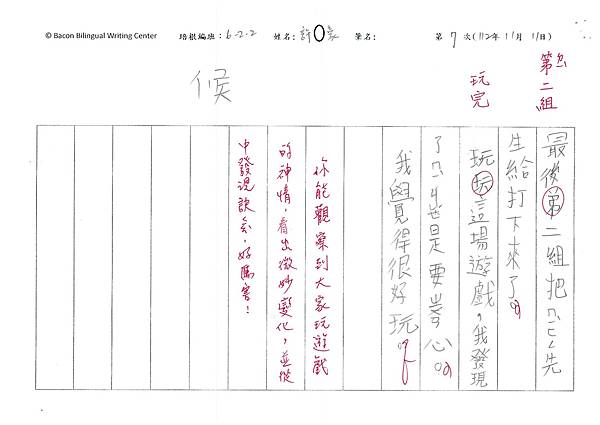 © Bacon Bilingual Writing Center 培根編班：6-2-2 姓名：許○豪 筆名： 第7次(112年11月11日)
候
第ㄉㄧˋ二組
玩完
最後弟二組把ㄇㄛˊ先
生給打下來了。
玩玩這場遊戲，我發現
是要專心。
我覺得很好玩。
你能觀察到大家玩遊戲
的神情，看出微妙變化，並從
中發現訣竅，好厲害！